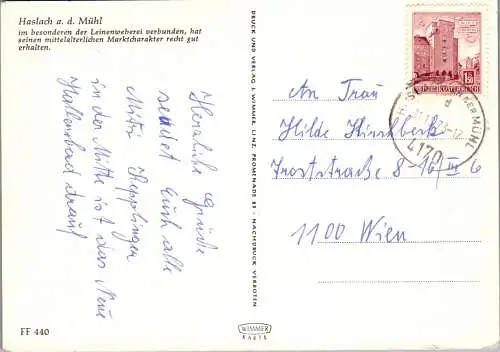 Haslach a. d. Mühl
im besonderen der Leinenweberei verbunden, hat
seinen mittelalterlichen Marktcharakter recht gut
erhalten.
Herzliche Grüße
sendet Euch alle
Mitzi Hepplinger
in der Mitte ist das Neue
Hallenbad drauf
FF 440
DRUCK UND VERLAG J. WIMMER, LINZ, PROMENADE 23 · NACHDRUCK VERBOTEN
WIMMER
KARTE
REPUBLIK ÖSTERREICH
1.50
MÜHL
4170
An Frau
Hilde Hirschbeck
Troststraße 8-16/III 6
1100 Wien